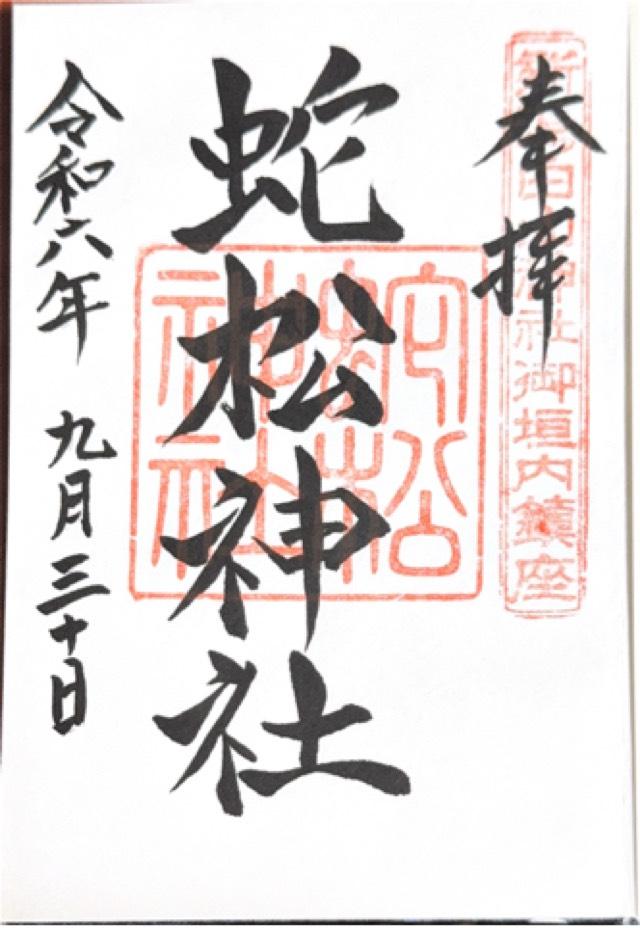 奉拝
社御垣内鎮座
蛇松神社
蛇松神社
令和六年 九月三十日